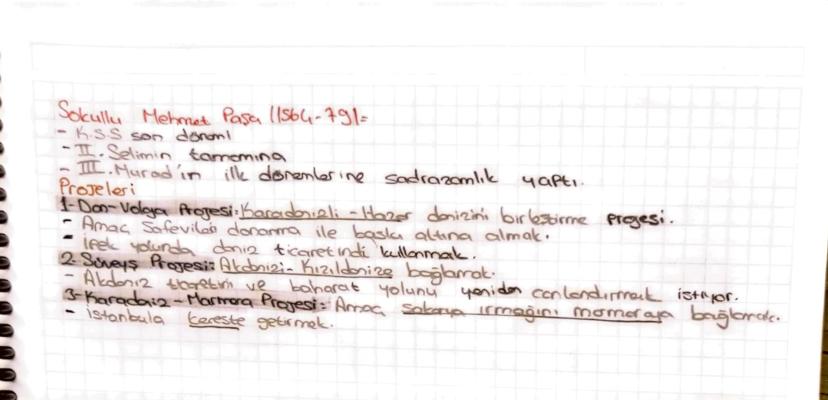 Sokullu Mehmet Paşa (1564-79)=
- K.S.S son dönemi
- II. Selimin tamamına
- III. Murad'in ilk dönemlerine sadrazamlık yaptı.
Projeleri
1-Don-Volga Projesi: Karadenizli - Hazar denizini birleştirme projesi.
- Amaç Safevileri donanma ile baskı altına almak.
- İpek yolunda deniz ticaretindi kullanmak.
2- Süveyş Projesi: Akdenizi - Kızıldenize bağlamak.
- Akdeniz ticaretini ve baharat yolunu yeniden canlandırmak istiyor.
3- Karadeniz - Marmara Projesi: Amaç sakarya ırmağını marmaraya bağlamak.
- istanbula kereste getirmek.